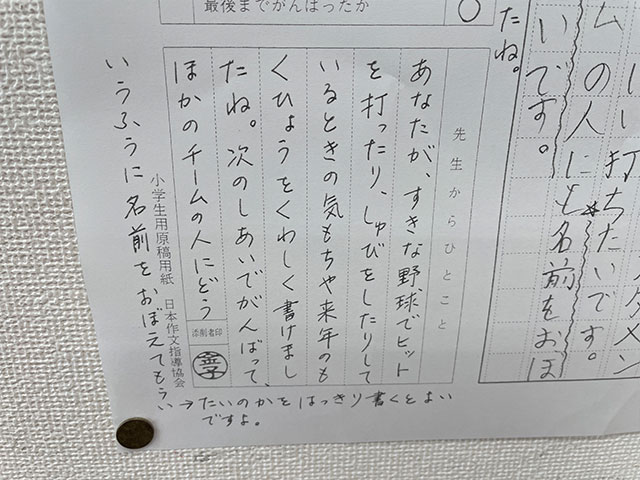 タメン
い打ちたいです。
ムの人にも名前をおぼ
いです。
たね。
最後までがんばったか
○
先生からひとこと
あなたが、すきな野球でヒット
を打ったり、しゅびをしたりして
いるときの気もちや来年のも
くひょうをくわしく書けまし
たね。次のしあいでがんばって、
ほかのチームの人にどう
いうふうに名前をおぼえてもらい→
たいのかをはっきり書くとよい
ですよ。
添削者印
金子
小学生用原稿用紙 日本作文指導協会